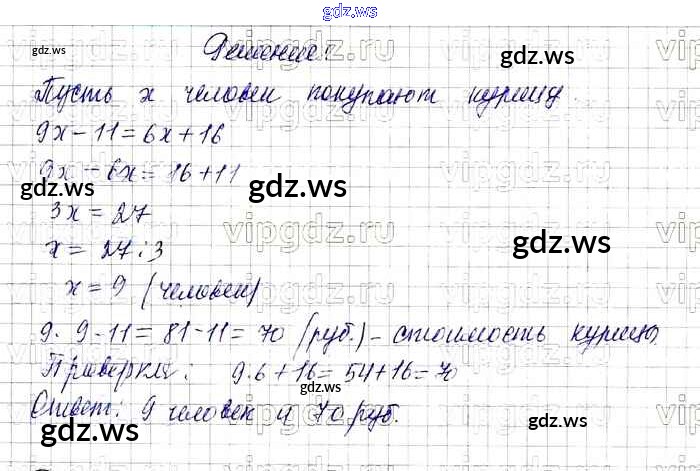 gdz.ws
gdz.ws Решение: gdz.ws
Пусть х человек покупают курицу.
9х - 11 = 6х + 16
9х - 6х = 16 + 11
gdz.ws gdz.ws
3х = 27
х = 27 : 3 gdz.ws
х = 9 (человек)
9 · 9 - 11 = 81 - 11 = 70 (руб.) - стоимость курицы.
Проверка: 9 · 6 + 16 = 54 + 16 = 70
gdz.ws
Ответ: 9 человек и 70 руб.
gdz.ws gdz.ws
vipgdz.ru